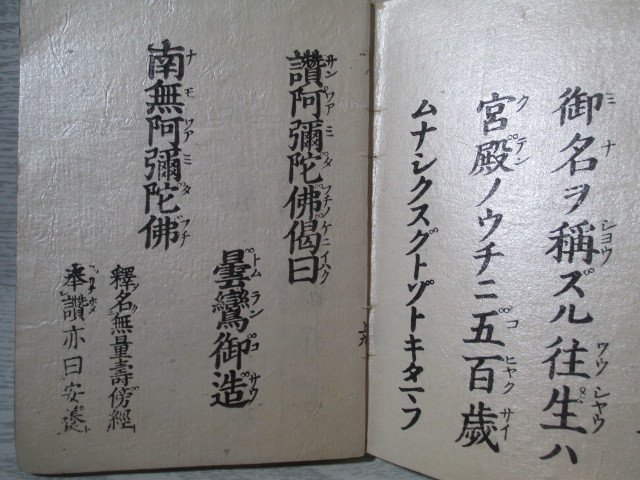 御名ヲ稱ズル往生ハ
宮殿ノウチニ五百歳
ムナシクスグトゾトキタマフ
讚阿彌陀佛偈曰
曇鸞御造
南無阿彌陀佛
釋名無量壽傍經
奉讚亦曰安養